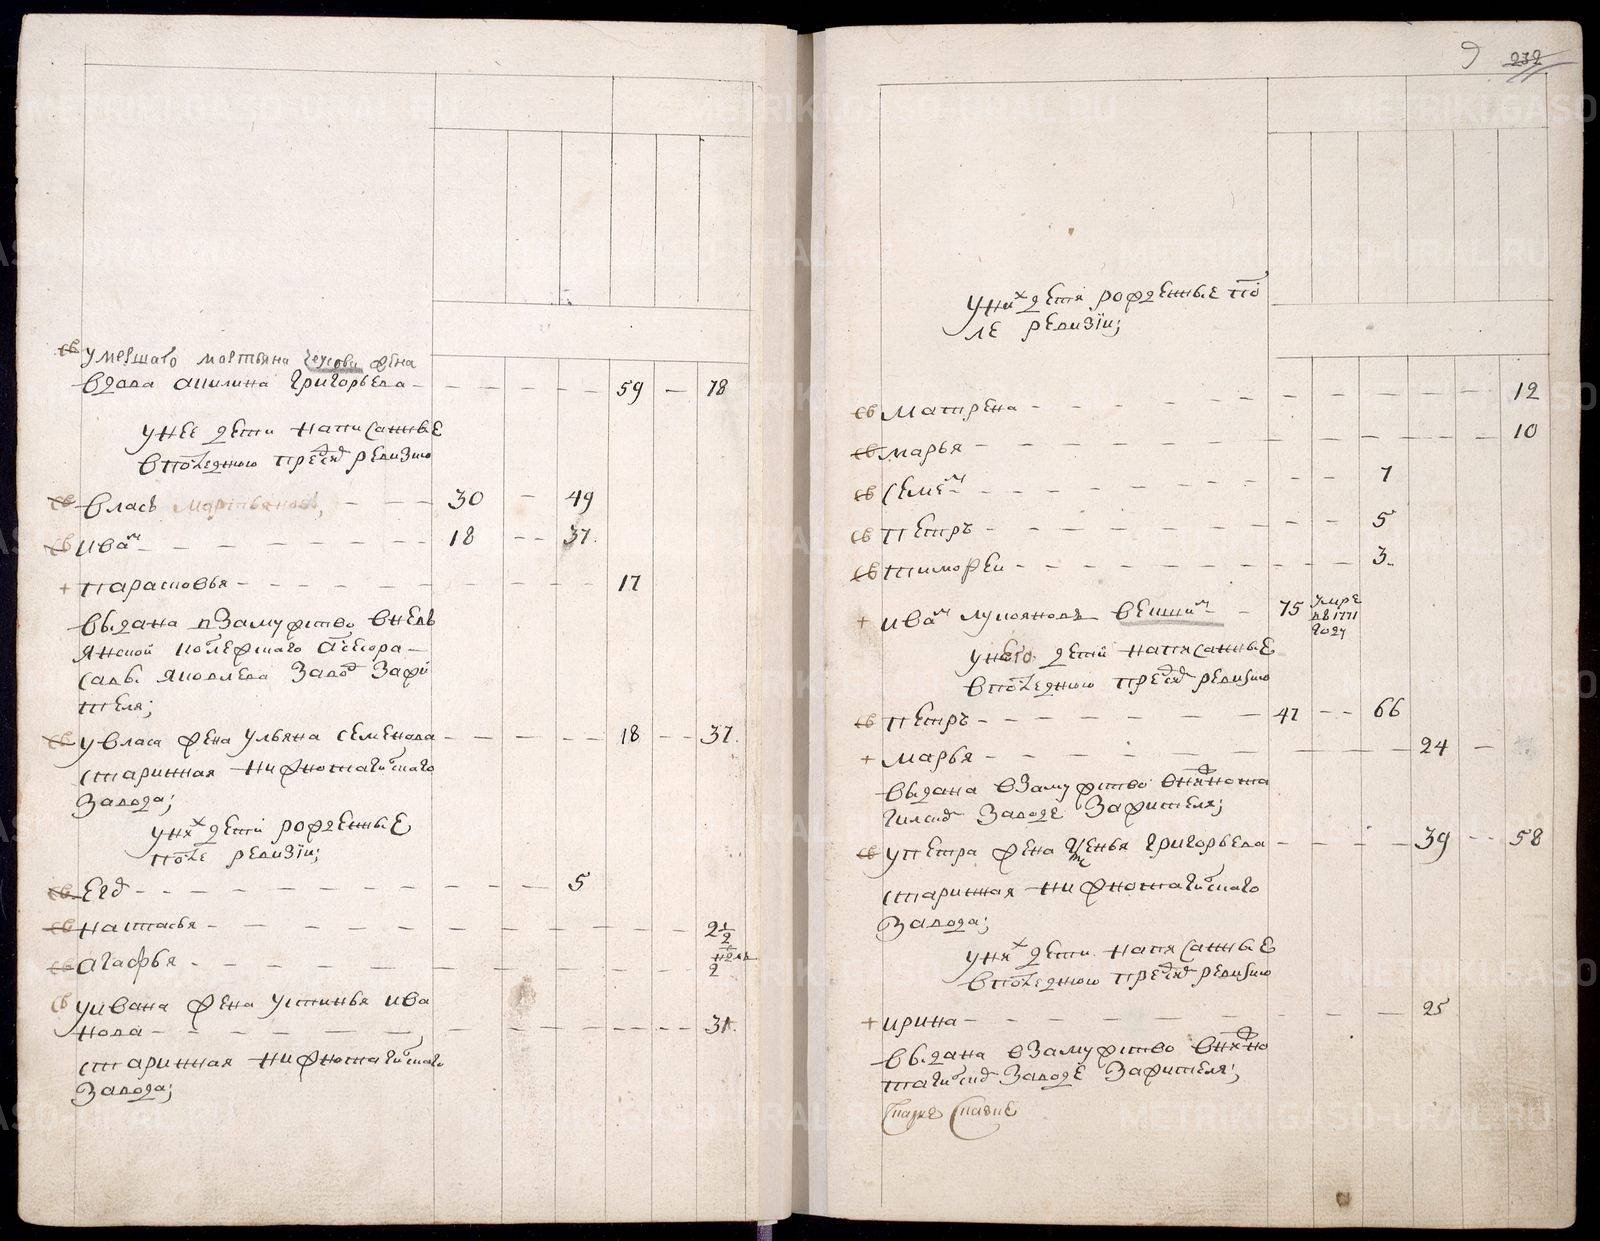 умершаго мартьяна чеусова жена
вдова акилина григорьева 59 78
у нее дети написанные
в последнюю пред сего ревизию
св власъ мартьяновъ, 30 49
св иван 18 37.
+ парасковья 17
выдана в замужство в невь
янской
Саввы яковлева завод за жи
теля;
св у власа жена ульяна семенова 18 37.
старинная нижнотагилского
завода;
у них дети рожденные
после ревизiи;
св 5
св настасья 2 1/2
св агафья 2
св у ивана жена устинья ива
нова 31.
старинная нижнотагилского
завода;
9 232
у них дети рожденные по
ле ревизiи;
св матрена 12
св марья 10
св семен 7
св петръ 5
св тимофеи 3.
+ иван лукоянов 75 умре
в 1771
году
у него дети написанные
в последнюю пред сего ревизию
св петръ 47 66
+ марья 24
выдана в замужство в нижнота
гилской заводе за жителя;
св у петра жена григорьева 39 58
старинная нижнотагилского
завода;
у них дети написанные
в последнюю пред сего ревизию
+ ирина 25
выдана в замужство в нижно
тагилской заводе за жителя;